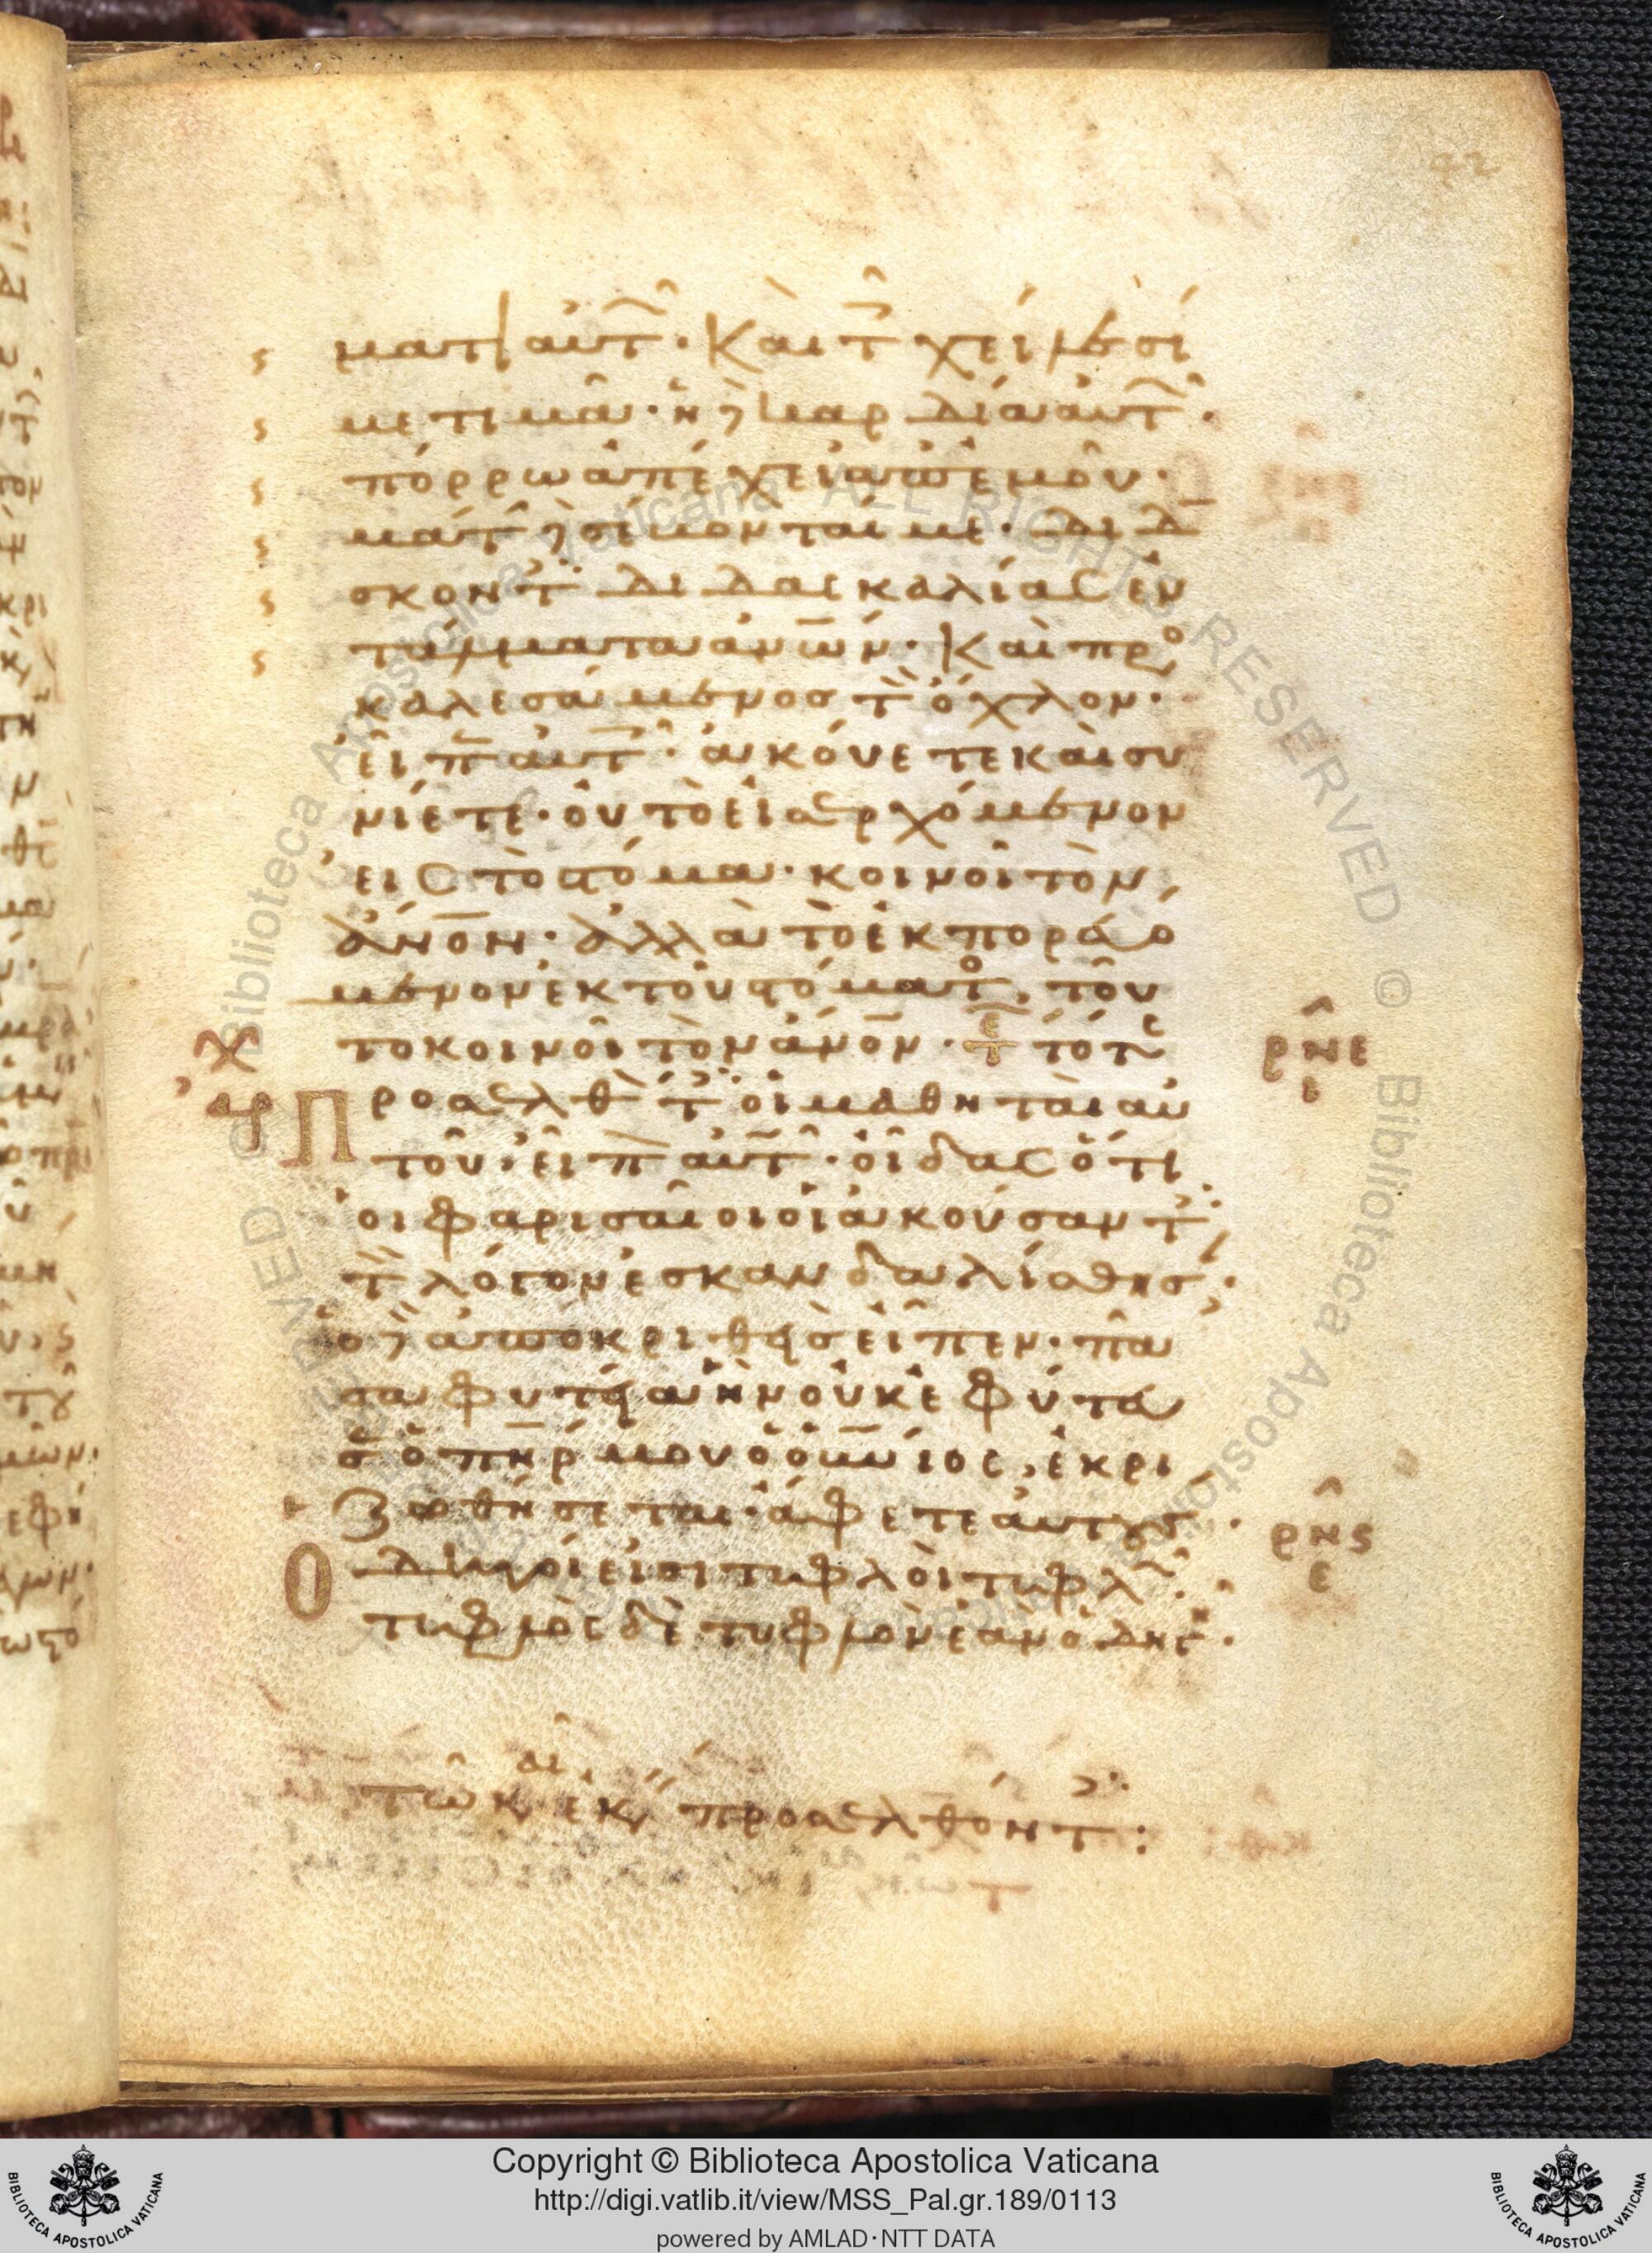 42
ματι αὐτ̑· Καὶ τ̑ χείλεσί
με τιμᾶ· ἡ δὲ καρδία αὐτ̑·
πόρρω ἀπέχει ἀπ' ἐμοῦ·
μάτ δὲ σέβονταί με· διδά
σκοντ διδασκαλίας ἐν
τάλματα ἀν̅ων· Καὶ προσ
καλεσάμενος τ ὄχλον·
εἶπ αὐτ· ἀκούετε καὶ συ
νίετε· οὐ τὸ εἰσερχόμενον
εἰς τὸ στόμα· κοινοῖ τὸν
ἄν̅ον· ἀλλὰ τὸ ἐκπορευό
μενον ἐκ τοῦ στόματ, τοῦ
το κοινοῖ τὸν ἄν̅ον· τε τότε
προσελθ τ οἱ μαθηταὶ αὐ
τοῦ· εἶπ αὐτ· οἶδας ὅτι
οἱ φαρισαῖοι οἱ ἀκούσαντ
τ λόγον ἐσκανδαλίσθησ·
ὁ δὲ ἀποκριθεὶς εἶπεν· πᾶ
σα φυτεία ἣν οὐκ ἐφύτευ
σ ὁ π̅ηρ μου ὁ οὐ̅νιος, ἐκρι
ζωθήσεται· ἄφετε αὐτούς·
Ὁδηγοί εἰσι τυφλοὶ τυφλ·
τυφλὸς δὲ τυφλὸν ἐὰν ὁδηγ·
ρνε
ι
ρνς
ε
τῶ κ ἐκ προσελθόντ:
Copyright © Biblioteca Apostolica Vaticana
http://digi.vatlib.it/view/MSS_Pal.gr.189/0113
powered by AMLAD·NTT DATA
BIBLIOTECA APOSTOLICA VATICANA
BIBLIOTECA APOSTOLICA VATICANA